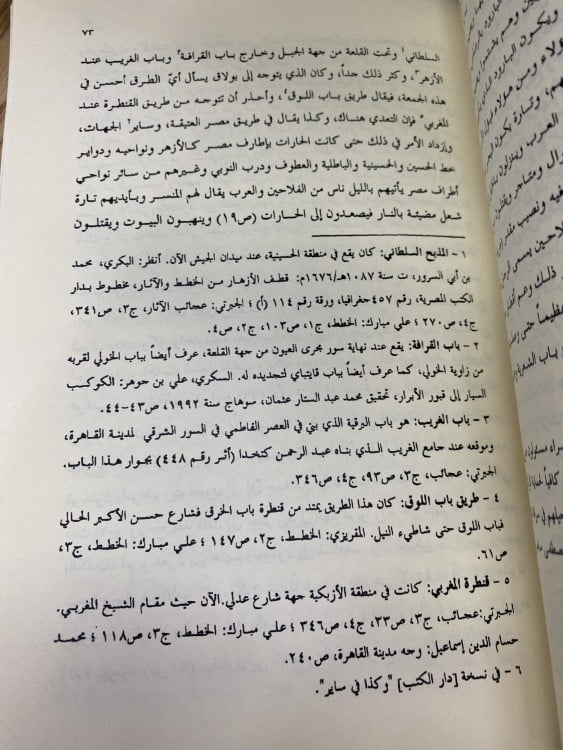 ٧٣
السلطاني١ وتحت القلعة من جهة الجبل وخارج باب القرافة٢ وباب الغريب عند
الأزهر٣ وكثر ذلك جداً، وكان الذي يتوجه إلى بولاق يسأل أيّ الطرق أحسن في
هذه الجمعة، فيقال طريق باب اللوق٤، وأحذر أن تتوجه من طريق القنطرة عند
المغربي٥ فإن التعدي هناك، وكذا يقال في طريق مصر العتيقة، وساير٦ الجهات،
وإزداد الأمر في ذلك حتى كانت الحارات بإطارف مصر كالأزهر ونواحيه ودواير
خط الحسين والحسينية والباطلية والعطوف ودرب النوبي وغيرهم من سائر نواحي
أطراف مصر يأتيهم بالليل ناس من الفلاحين والعرب يقال لهم المنسر وبأيديهم تارة
شعل مضيئة بالنار فيصعدون إلى الحارات (ص١٩) وينهبون البيوت ويقتلون
١ – المذبح السلطاني: كان يقع في منطقة الحسينية، عند ميدان الجيش الآن. أنظر: البكري، محمد
بن أبي السرور، ت سنة ١٠٨٧هـ/١٦٧٦م: قطف الأزهار من الخطط والآثار، مخطوط بدار
الكتب المصرية، رقم ٤٥٧جغرافيا، ورقة رقم ١١٤ (أ)؛ الجبرتي: عجائب الآثار، ج٣، ص٣٤١،
ج٤، ص٢٧٠؛ علي مبارك: الخطط، ج١، ص١٠٣، ج٢، ص٤.
٢ – باب القرافة: يقع عند نهاية سور مجرى العيون من جهة القلعة، عرف أيضاً بباب الخولي لقربه
من زاوية الخولي، كما عرف أيضاً بباب قايتباي لتجديده له. السكري، علي بن جوهر: الكوكب
السيار إلى قبور الأبرار، تحقيق محمد عبد الستار عثمان، سوهاج سنة ١٩٩٢، ص٤٣–٤٤.
٣ – باب الغريب: هو باب البرقية الذي بني في العصر الفاطمي في السور الشرقي لمدينة القاهرة،
وموقعه عند جامع الغريب الذي بناه عبد الرحمن كتخدا (أثر رقم ٤٤٨) بجوار هذا الباب.
الجبرتي: عجائب، ج٣، ص٩٣، ج٤، ص٣٤٦.
٤ – طريق باب اللوق: كان هذا الطريق يمتد من قنطرة باب الخرق فشارع حسن الأكبر الحالي
فباب اللوق حتى شاطيء النيل. المقريزي: الخطط، ج٢، ص١٤٧؛ علي مبارك: الخطط، ج٣،
ص٦١.
٥ – قنطرة المغربي: كانت في منطقة الأزبكية جهة شارع عدلي.الآن حيث مقام الشيخ المغربي.
الجبرتي:عجائب، ج٣، ص٣٣، ج٤، ص٣٤٦؛ علي مبارك: الخطط، ج٣، ص١١٨؛ محمد
حسام الدين إسماعيل: وجه مدينة القاهرة، ص٢٤٠.
٦ – في نسخة [دار الكتب] "وكذا في ساير".